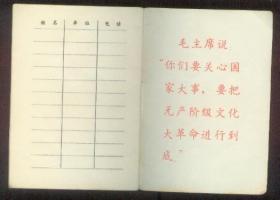 姓名 单位 电话
毛主席说
“你们要关心国
家大事，要把
无产阶级文化
大革命进行到
底”